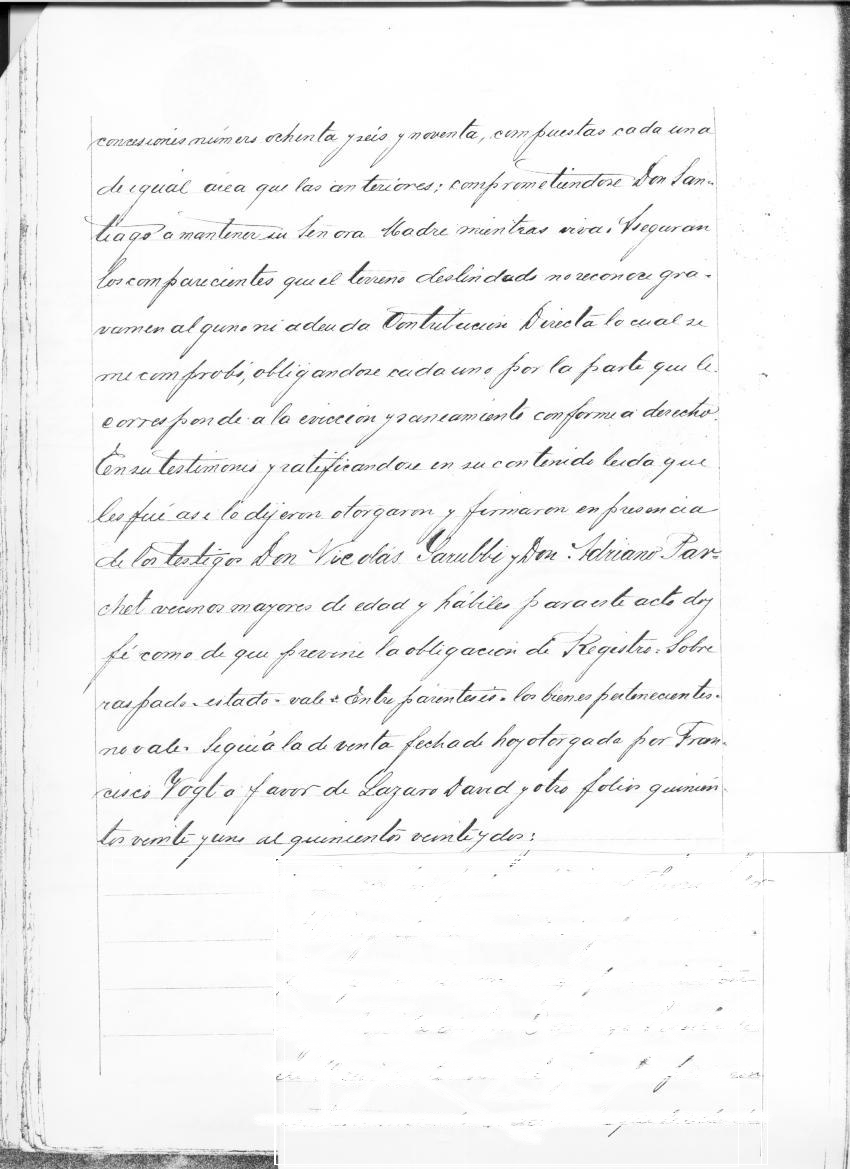 concesiones número ochenta y seis y noventa, compuestas cada una
de igual área que las anteriores; comprometiendose Don San-
tiago á mantener su Señora Madre mientras viva. Aseguran
los comparecientes que el terreno deslindado no reconoce gra-
vamen alguno ni adeuda Contribución Directa lo cual se
me comprobó, obligandose cada uno por la parte que le
corresponde a la evicción y saneamiento conforme a derecho.
En su testimonio y ratificandose en su contenido leida que
les fué asi lo dijeron otorgaron y firmaron en presencia
de los testigos Don Nicolás Sarubbi y Don Adriano Par-
chet vecinos mayores de edad y hábiles para este acto doy
fé como de que previne la obligación de Registro. Sobre
raspado - estado - vale - Entre paréntesis - los bienes pertenecientes -
no vale - Seguía la de venta fecha de hoy otorgada por Fran-
cisco Vogt a favor de Lazaro David y otro folios quinien-
tos veinte y uno al quinientos veinte y dos: